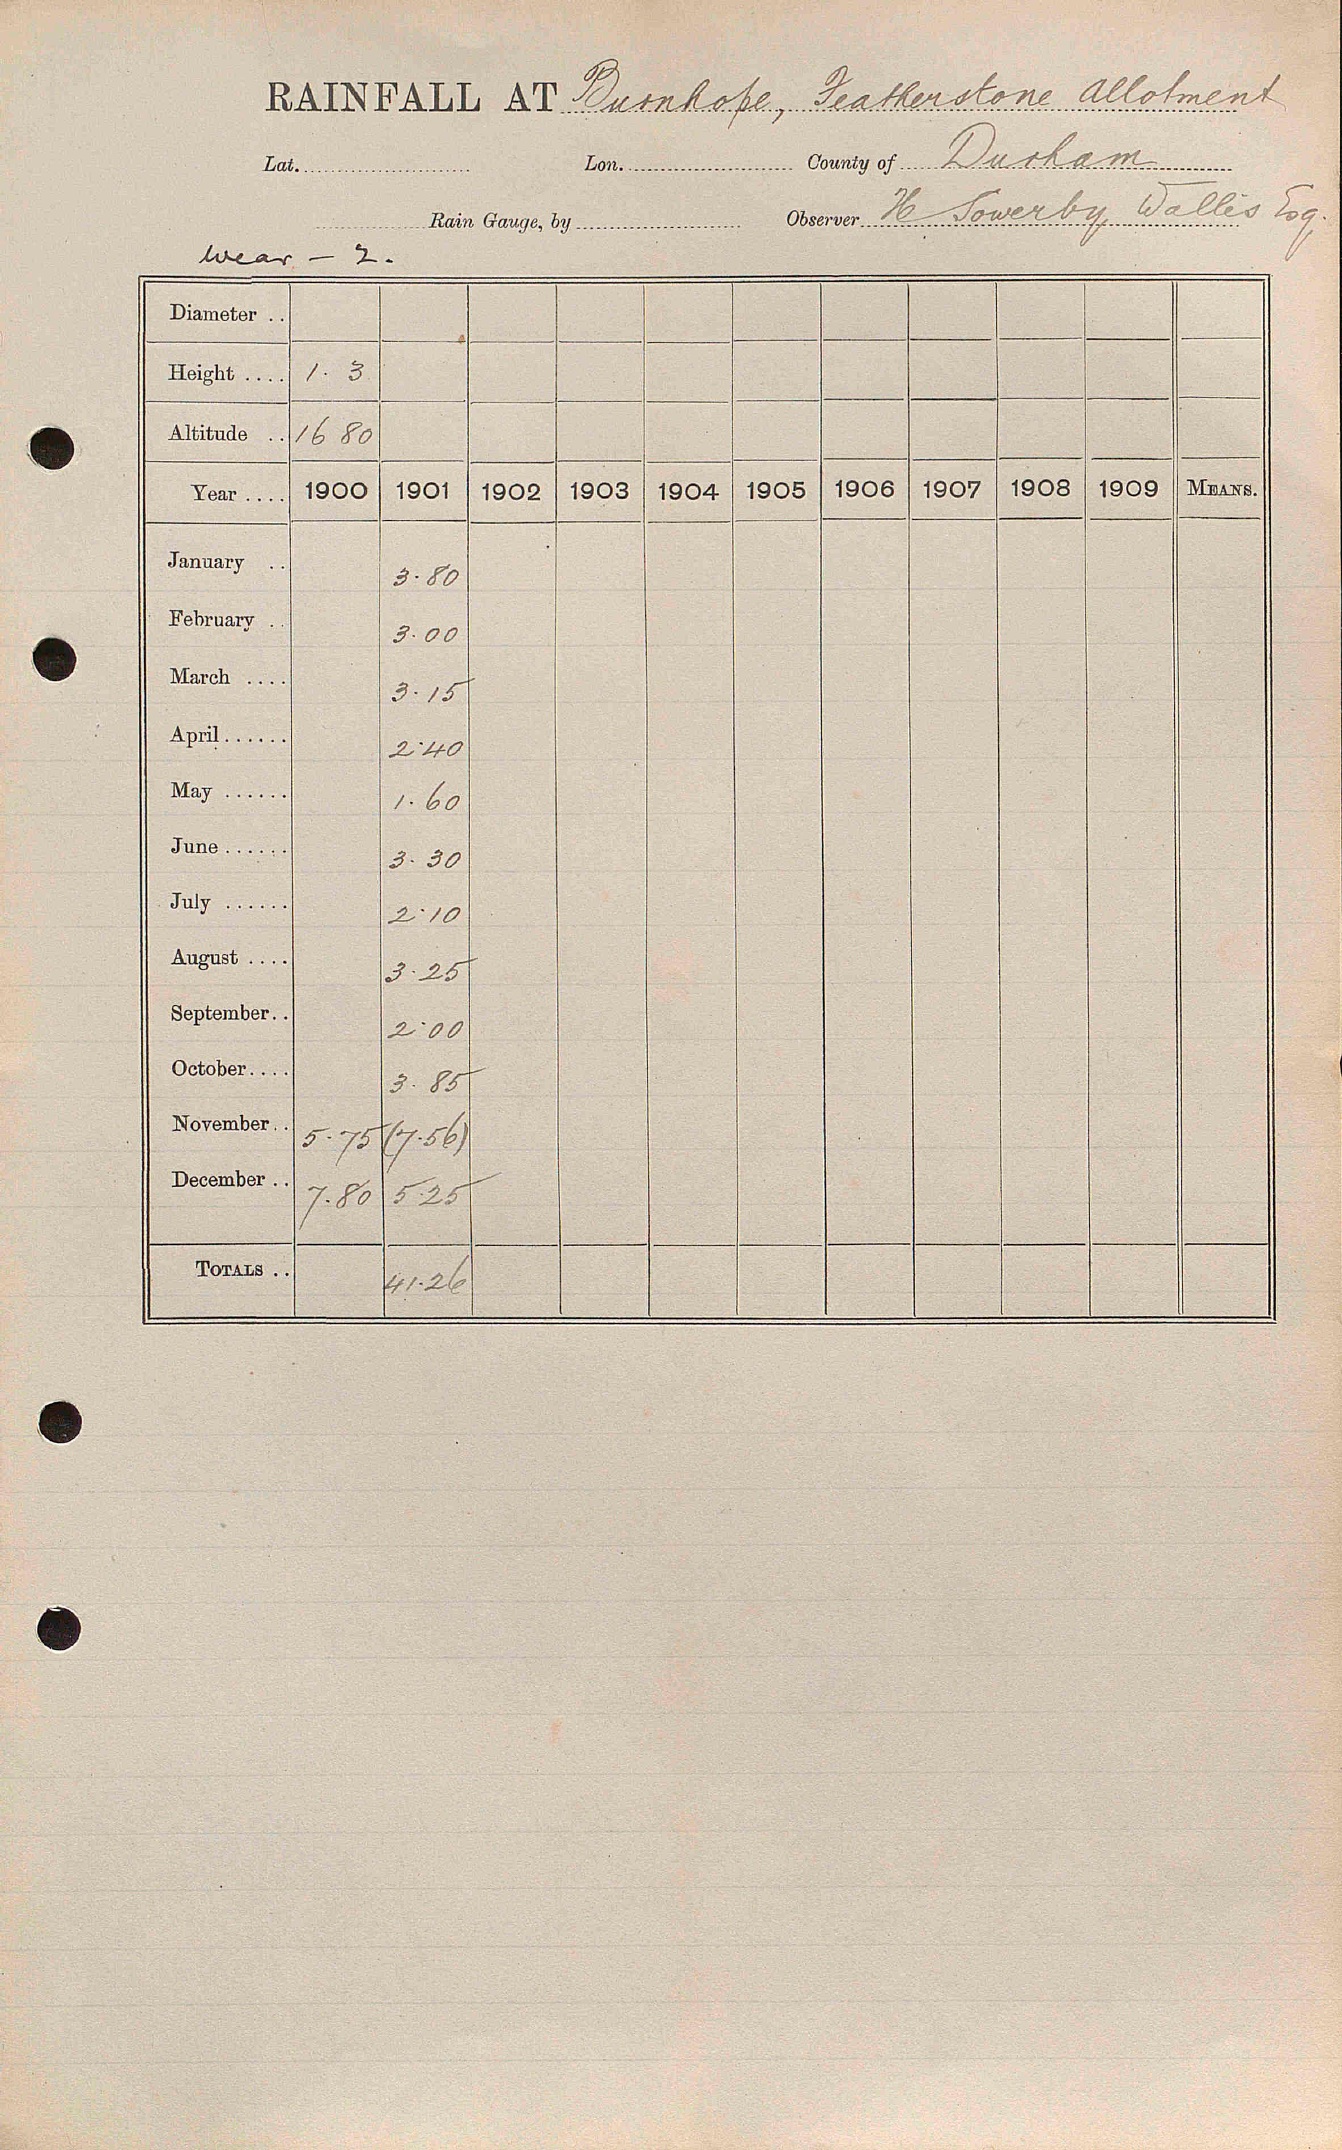 RAINFALL AT Burnhope, Featherstone Allotment
Lat. Lon. County of Durham
Rain Gauge, by Observer H Sowerby Wallis Esq.
Wear - 2.
Diameter ..
Height .... 1. 3
Altitude .. 1680
Year .... 1900 1901 1902 1903 1904 1905 1906 1907 1908 1909 MEANS.
January .. 3.80
February .. 3.00
March .... 3.15
April ...... 2.40
May ...... 1.60
June ...... 3.30
July ...... 2.10
August .... 3.25
September .. 2.00
October .... 3.85
November .. 5.75 (7.56)
December .. 7.80 5.25
TOTALS .. 41.26